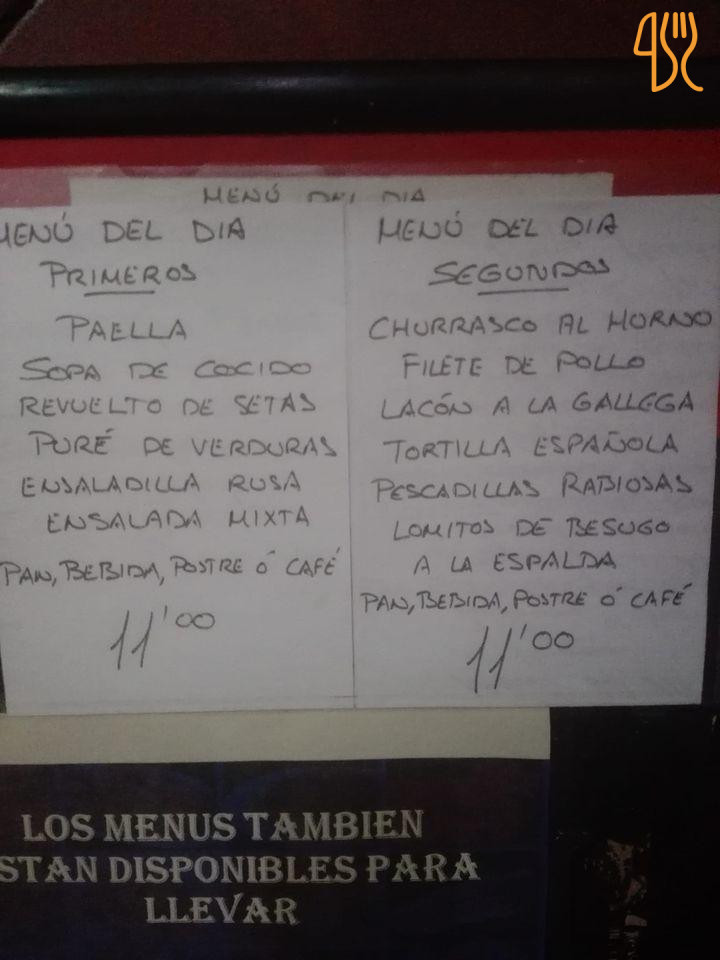 MENÚ DEL DIA
MENÚ DEL DIA
PRIMEROS
PAELLA
SOPA DE COCIDO
REVUELTO DE SETAS
PURÉ DE VERDURAS
ENSALADILLA RUSA
ENSALADA MIXTA
PAN, BEBIDA, POSTRE Ó CAFÉ
11'00
MENÚ DEL DIA
SEGUNDOS
CHURRASCO AL HORNO
FILETE DE POLLO
LACÓN A LA GALLEGA
TORTILLA ESPAÑOLA
PESCADILLAS RABIOSAS
LOMITOS DE BESUGO
A LA ESPALDA
PAN, BEBIDA, POSTRE Ó CAFÉ
11'00
LOS MENUS TAMBIEN
STAN DISPONIBLES PARA
LLEVAR